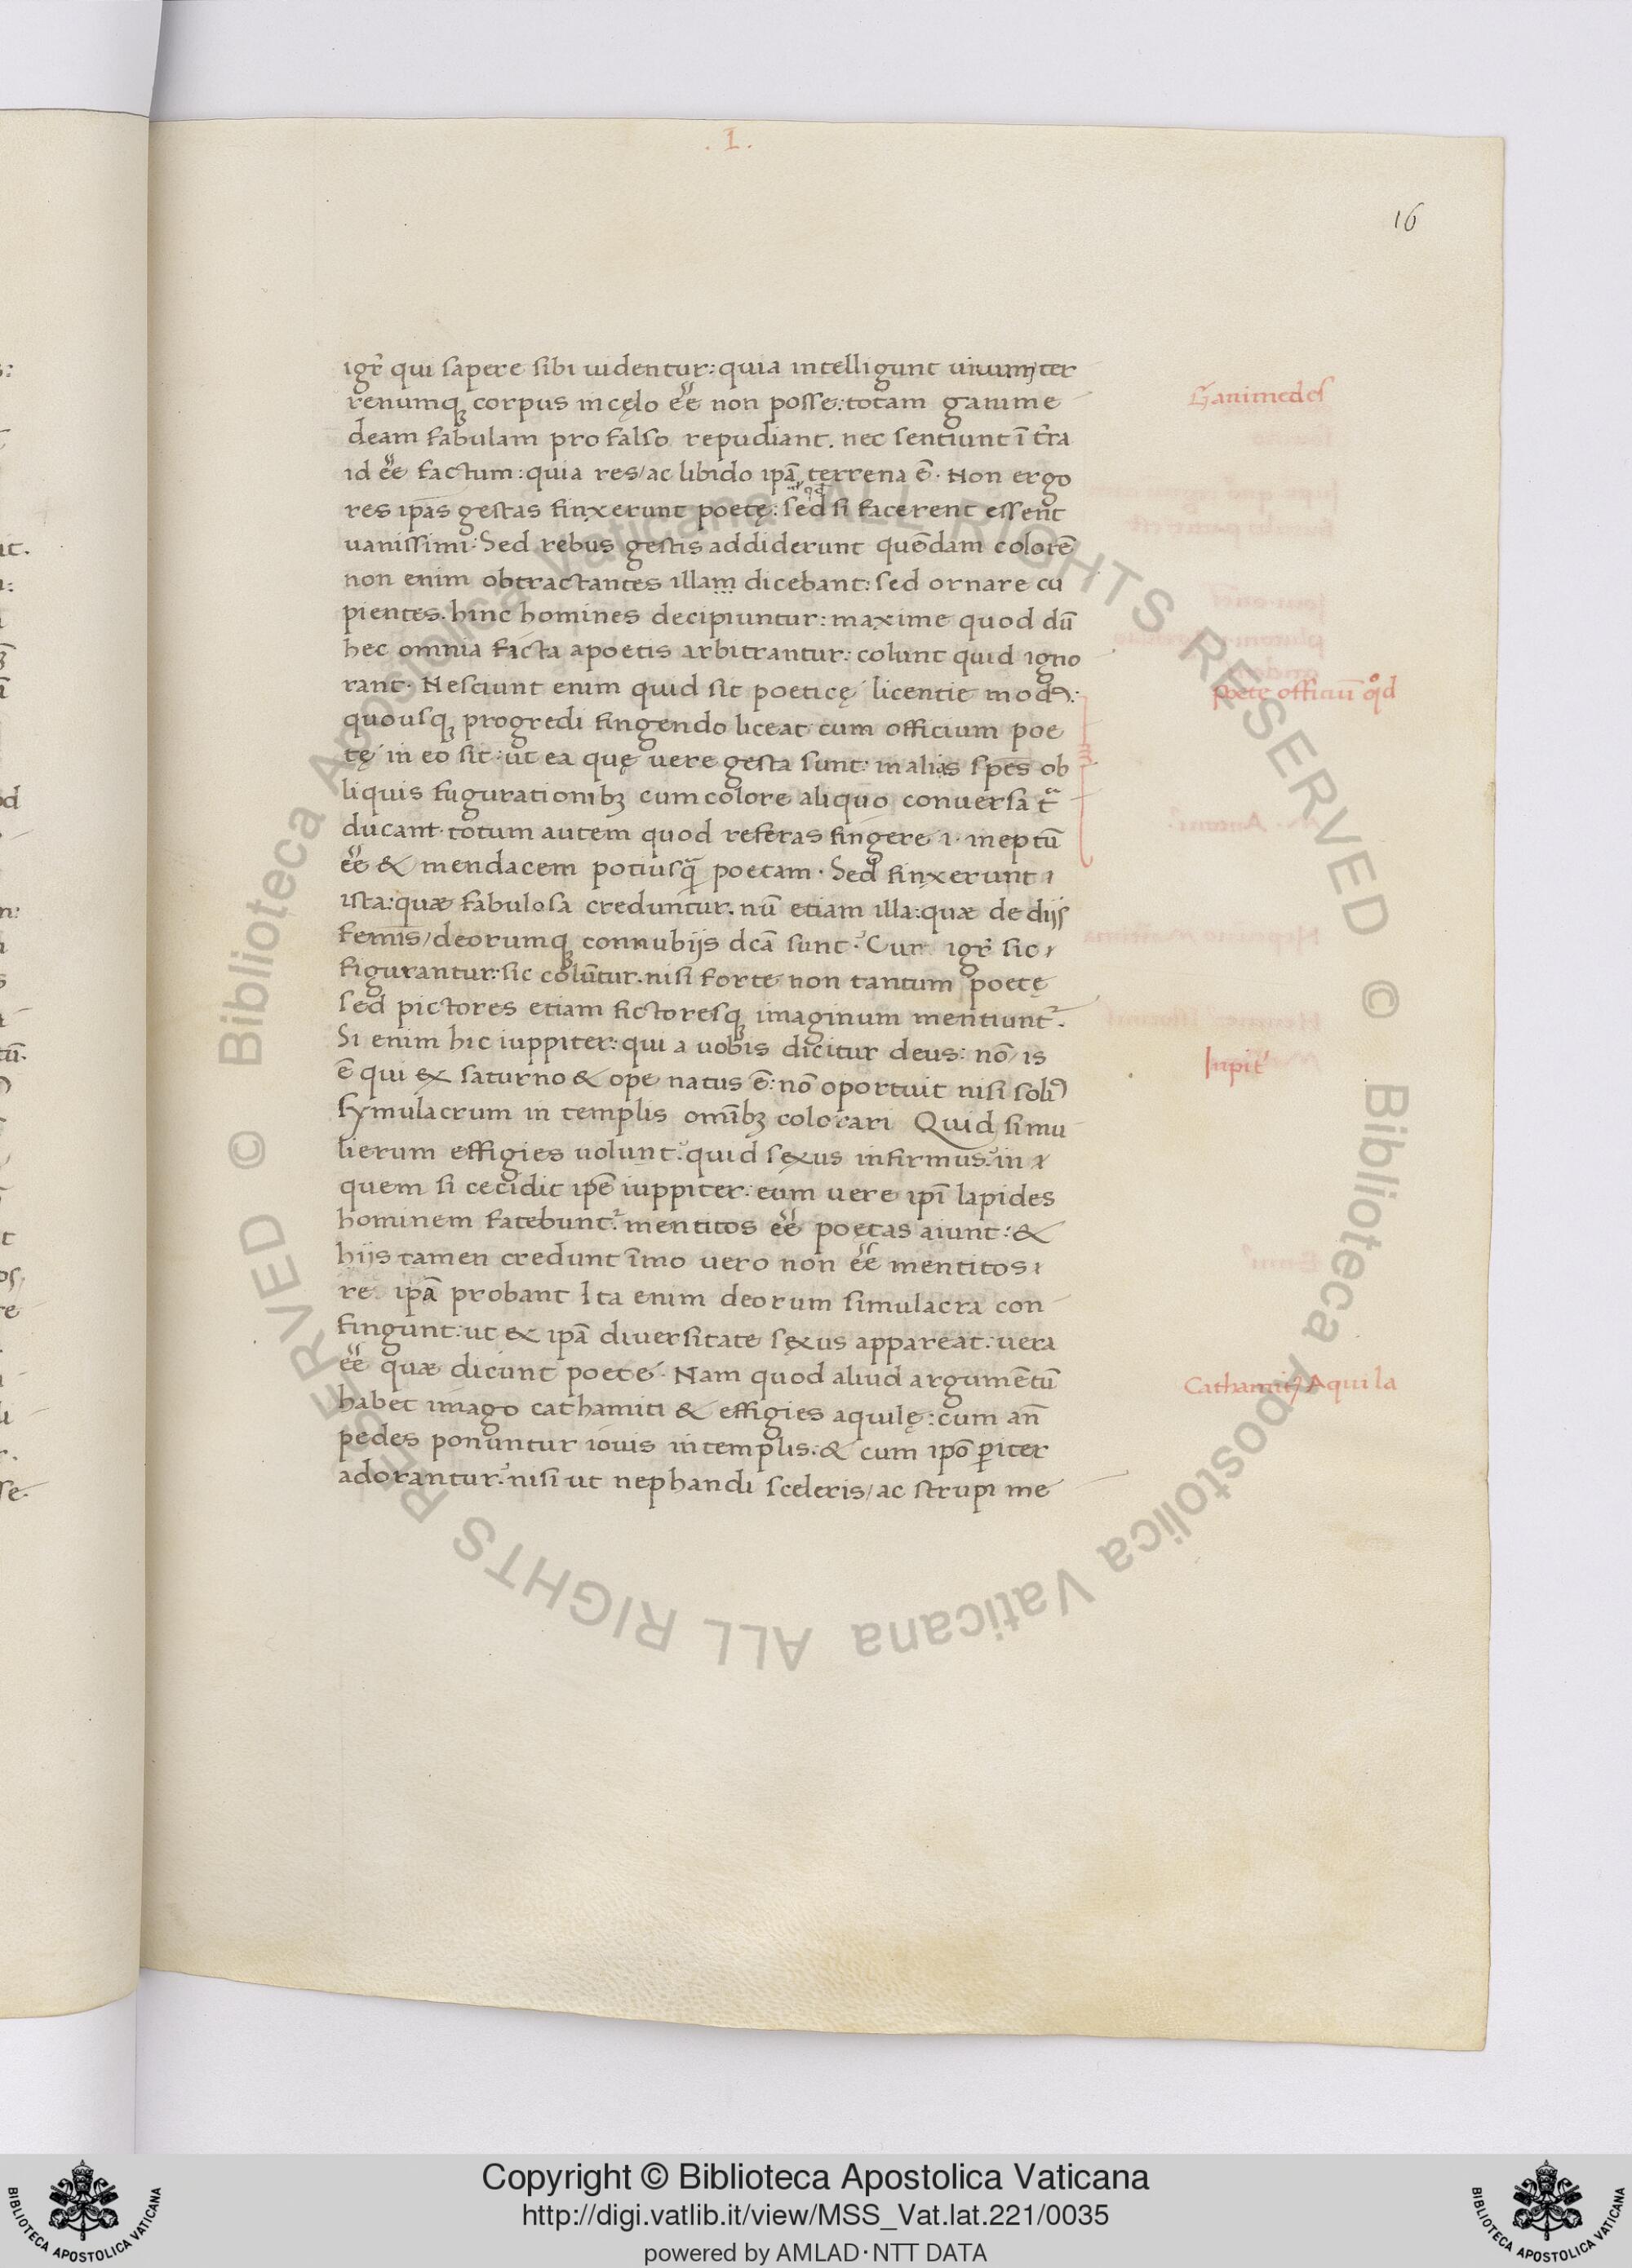 .I.
16
igr̃ qui sapere sibi uidentur: quia intelligunt uiuum ter
renumq; corpus in cęlo eē non posse: totam ganime
deam fabulam pro falso repudiant. nec sentiunt ī t̃ra
id eē factum: quia res/ ac libido ip̃a terrena ē. Non ergo
res ip̃as gestas finxerunt poetę: sed si facerent essent
uanissimi. Sed rebus gestis addiderunt quēdam colorē
non enim obtractantes illam dicebant: sed ornare cu
pientes. hinc homines decipiuntur: maxime quod dū
hec omnia ficta a poetis arbitrantur: colunt quid igno
rant. Nesciunt enim quid sit poeticę licentie modꝰ:
quousq; progredi fingendo liceat cum officium poe
tę in eo sit: ut ea quę uere gesta sunt: in alias sp̃es ob
liquis fugurationibꝫ cum colore aliquo conuersa tͣ
ducant. totum autem quod referas fingere ·i· ineptū
eē & mendacem potiusq̃ poetam. Sed finxerunt
ista: quæ fabulosa creduntur. nū etiam illa: quæ de dijs
femīs/ deorumq; connubijs dc̃a sunt? Cur igr̃ sic
figurantur: sic colūtur. nisi forte non tantum poetę
sed pictores etiam fictoresq; imaginum mentiuntᷣ.
Si enim hic iuppiter: qui a uobis dicitur deus: nō is
ē qui ex saturno & ope natus ē: nō oportuit nisi soliꝰ
symulacrum in templis omībꝫ colocari Quid si mu
lierum effigies uolunt? quid sexus infirmus? in
quem si cecidit ip̃e iuppiter: eum uere ip̃i lapides
hominem fatebuntᷣ. mentitos eē poetas aiunt: &
hijs tamen credunt īmo uero non eē mentitos
re ip̃a probant Ita enim deorum simulacra con
fingunt: ut ex ip̃a diuersitate sexus appareat: uera
eē quæ dicunt poete. Nam quod aliud argumētū
habet imago cathamiti & effigies aquilę: cum an̄
pedes ponuntur iouis in templis. & cum ip̃o ꝑiter
adorantur? nisi ut nephandi sceleris/ ac strupi me
Ganimedes
poete officiū qd
Iupit̃
Cathamitꝰ Aquila
© Biblioteca Apostolica Vaticana ALL RIGHTS RESERVED © Biblioteca Apostolica Vaticana ALL RIGHTS RESERVED
Copyright © Biblioteca Apostolica Vaticana
http://digi.vatlib.it/view/MSS_Vat.lat.221/0035
powered by AMLAD·NTT DATA
BIBLIOTECA APOSTOLICA VATICANA
BIBLIOTECA APOSTOLICA VATICANA